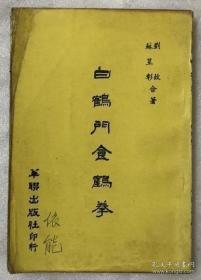 劉故
蘇昱彰合著
白鶴門食鶴拳
華聯出版社印行